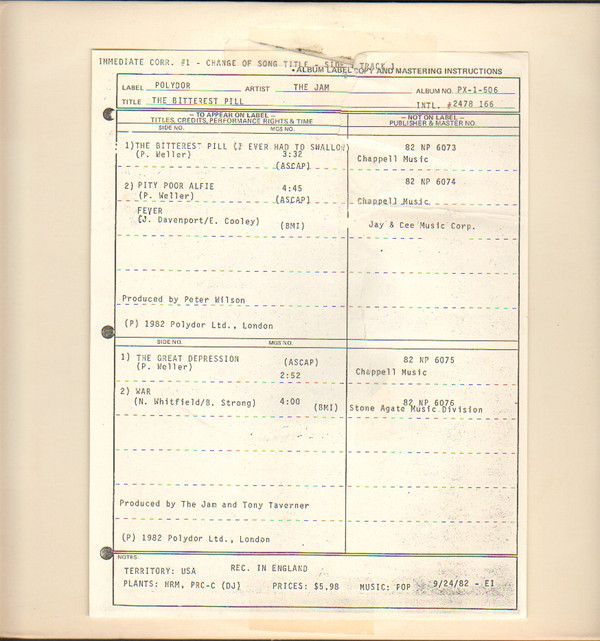 IMMEDIATE CORR. #1 - CHANGE OF SONG TITLE - SIDE 1 TRACK 1
• ALBUM LABEL COPY AND MASTERING INSTRUCTIONS
LABEL POLYDOR ARTIST THE JAM ALBUM NO. PX-1-506
TITLE THE BITTEREST PILL INTL. #2478 166
— TO APPEAR ON LABEL — — NOT ON LABEL —
TITLES, CREDITS, PERFORMANCE RIGHTS & TIME PUBLISHER & MASTER NO.
SIDE NO. MGS NO.
1)THE BITTEREST PILL (I EVER HAD TO SWALLOW) 82 NP 6073
(P. Weller) 3:32 Chappell Music
(ASCAP)
2) PITY POOR ALFIE 4:45 82 NP 6074
(P. Weller) (ASCAP) Chappell Music
FEVER
(J. Davenport/E. Cooley) (BMI) Jay & Cee Music Corp.
Produced by Peter Wilson
(P) 1982 Polydor Ltd., London
SIDE NO. MGS NO.
1) THE GREAT DEPRESSION (ASCAP) 82 NP 6075
(P. Weller) 2:52 Chappell Music
2) WAR 82 NP 6076
(N. Whitfield/B. Strong) 4:00 (BMI) Stone Agate Music Division
Produced by The Jam and Tony Taverner
(P) 1982 Polydor Ltd., London
NOTES:
TERRITORY: USA REC. IN ENGLAND
PLANTS: HRM, PRC-C (DJ) PRICES: $5.98 MUSIC: POP 9/24/82 - EI